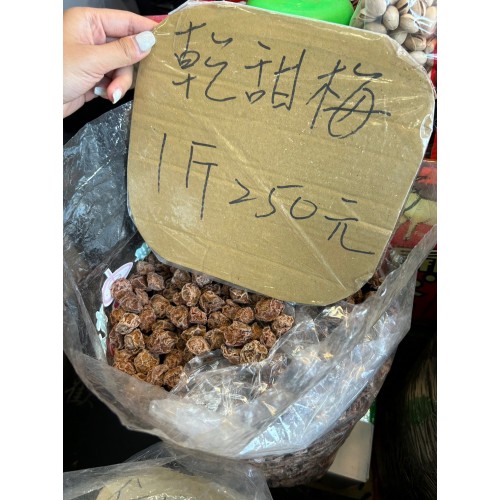 乾甜梅
1斤250元